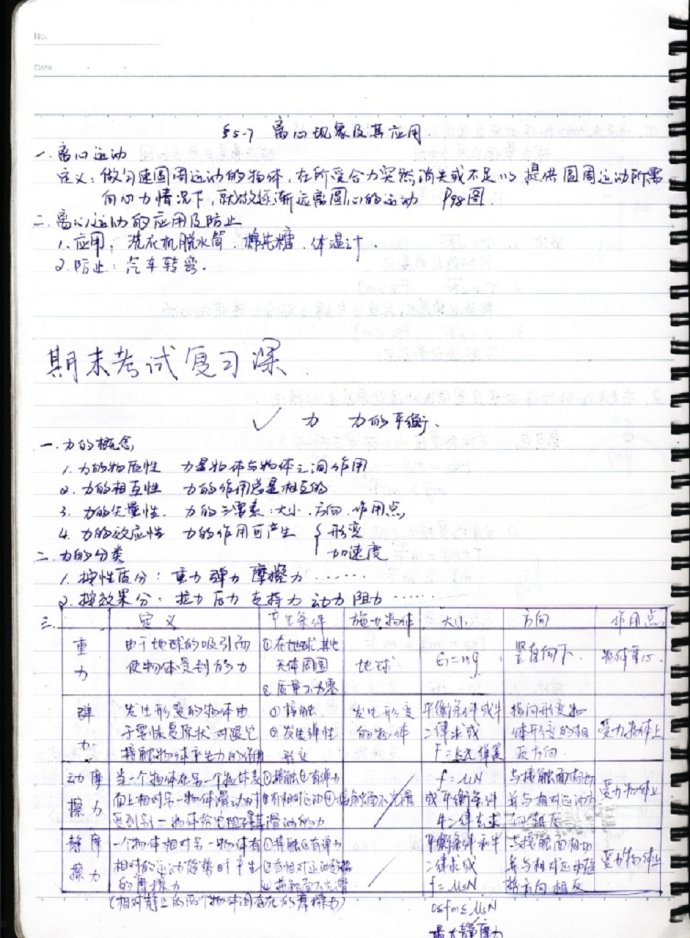 No.
Date
§5-7 离心现象及其应用
一.离心运动
定义:做匀速圆周运动的物体,在所受合力突然消失或不足以提供圆周运动所需
向心力情况下,就做逐渐远离圆心的运动 P98图.
二.离心运动的应用及防止
1.应用:洗衣机脱水筒.棉花糖.体温计.
2.防止:汽车转弯.
期末考试复习课
✓ 力 力的平衡.
一.力的概念
1.力的物质性 力是物体与物体之间作用
2.力的相互性 力的作用总是相互的
3.力的矢量性. 力的三要素:大小.方向.作用点
4.力的效应性 力的作用可产生 { 形变
加速度
二.力的分类
1.按性质分:重力 弹力 摩擦力……
2.按效果分:拉力 压力 支持力 动力 阻力……
三. 定义 产生条件 施力物体 大小 方向 作用点
重力 由于地球的吸引而使物体受到的力 ①在地球.其他天体周围 ②质量不为零 地球 G=mg 竖直向下. 物体重心.
弹力 发生形变的物体由于要恢复原状对跟它接触物体产生力的作用 ①接触 ②发生弹性形变 发生形变的物体 平衡条件或牛二律求或 f=kx弹簧 指向形变物体形变的相反方向. 受力物体上
动摩擦力 当一个物体在另一个物体表面上相对另一物体滑动时受到另一物体给它阻碍其滑动的力 ①接触②有弹力③有相对运动④接触面不光滑 f=μN 或平衡条件牛二律去求 与接触面相切并与相对运动方向相反 受力物体上
静摩擦力 一个物体相对另一个物体有相对的运动趋势时产生的摩擦力 ①接触②有弹力③有相对运动趋势④接触面不光滑 平衡条件和牛二律求或 f=μsN 与接触面相切并与相对运动趋势方向相反 受力物体上
(相对静止的两个物体间存在的摩擦力) 0≤fm≤μsN
最大静摩力